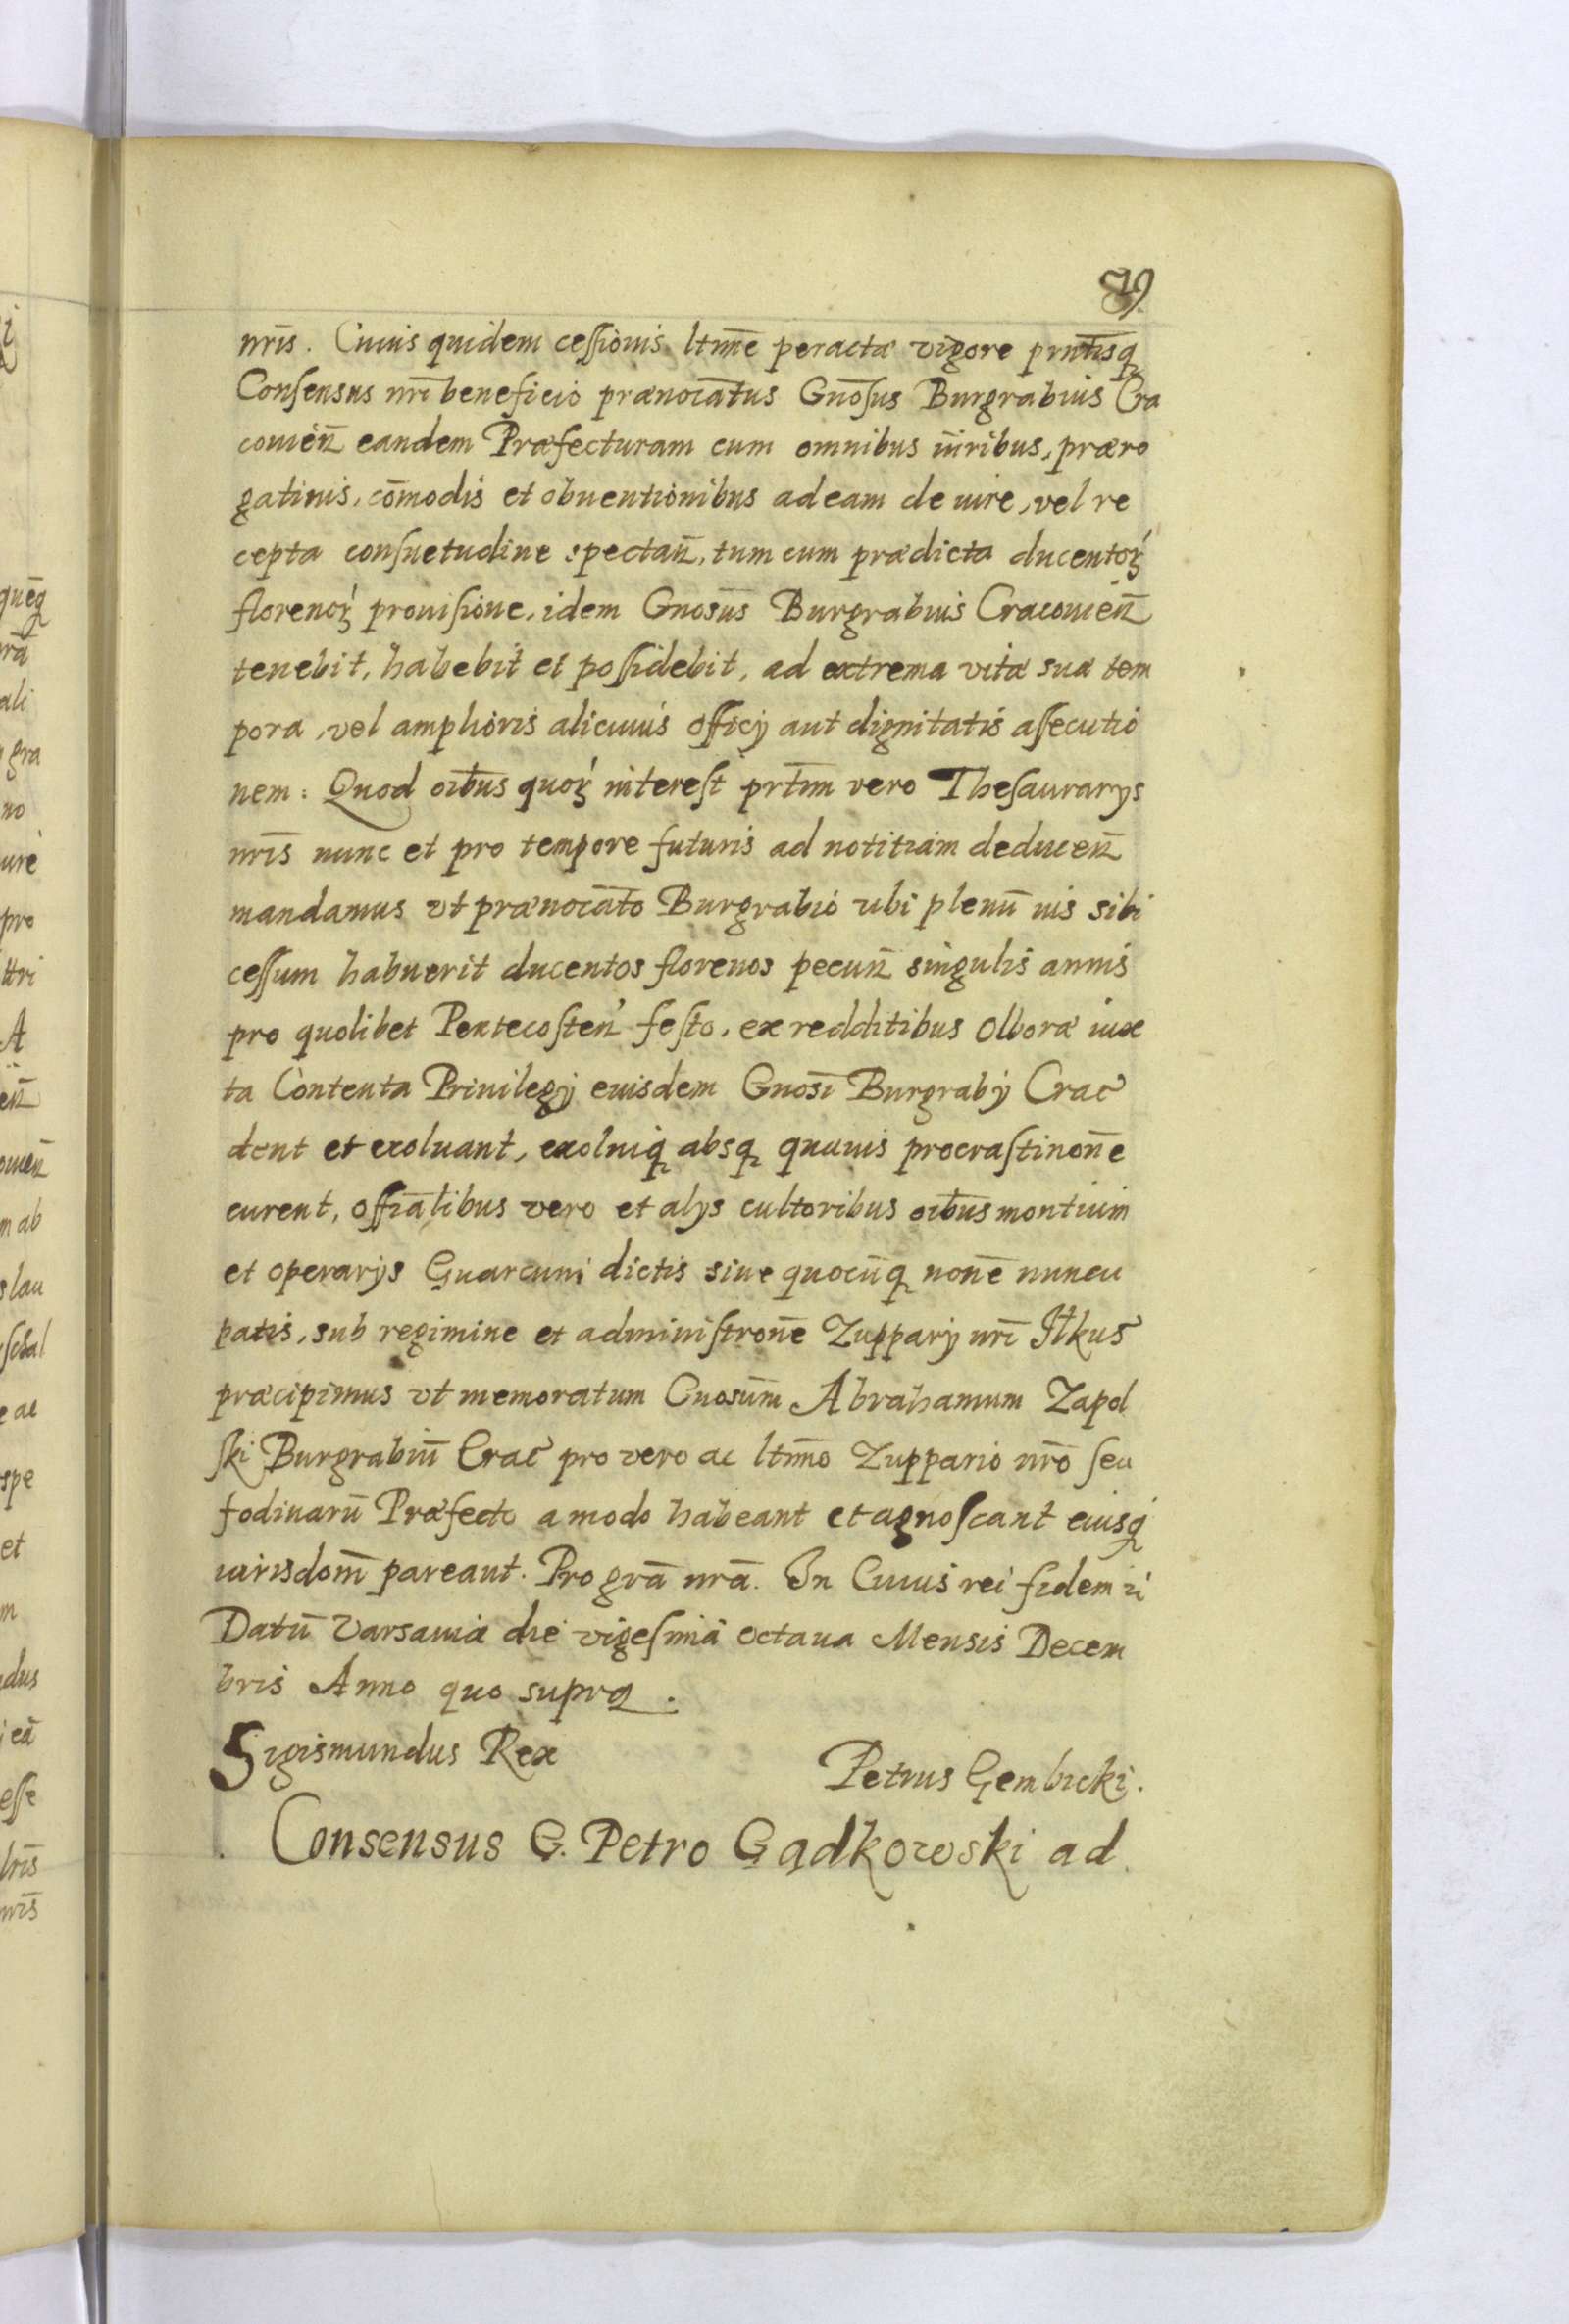 79.
nr̄is. Cuius quidem ceſſionis ltm̄e peractæ vigore prn̄tisq̨
Consensus nr̄i beneficio prænoīatus Gnōsus Burgrabius Cra
couien̄ eandem Præfecturam cum omnibus iuribus, præro
gatiuis, cōmodis et obuentionibus ad eam de iure, vel re
cepta conſuetudine spectan̄, tum cum prædicta ducentoꝝ
florenoꝝ prouiſione, idem Gnosūs Burgrabius Cracouien̄
tenebit, habebit et poſſidebit, ad extrema vitæ suæ tem
pora, vel amplioris alicuius officÿ aut dignitatis aſſecutio
nem: Quod oībus quoꝝ intereſt prt̄im vero Theſaurarÿs
nr̄is nunc et pro tempore futuris ad notitiam deducen̄
mandamus vt prænoīato Burgrabio ubi plenū ius sibi
ceſſum habuerit ducentos florenos pecun̄ singulis annis
pro quolibet Pentecoſten̄ feſto, ex redditibus Olboræ iux
ta Contenta Priuilegÿ eiusdem Gnosī Burgrabÿ Crac̄
dent et exoluant, exoluiq̨ absq̨ quauis procraſtinon̄e
curent, offiālibus vero et alÿs cultoribus oībus montium
et operarÿs Guarcuni dictis siue quocūq̨ non̄e nuncu
patis, sub regimine et adminiſtron̄e Zupparÿ nr̄i Ilkus̄
præcipimus vt memoratum Gnosūm Abrahamum Zapol
ſki Burgrabiū Crac̄ pro vero ac ltm̄o Zuppario nr̄o ſeu
fodinarū Præfecto a modo habeant et agnoſcant eiusq̨
iurisdom̄ pareant. Pro grā nr̄a. In Cuius rei fidem
Datū Varsauiæ die vigeſima octaua Mensis Decem
bris Anno quo supra.
Sigismundus Rex
Petrus Gembicki.
Consensus G. Petro Gądkowski ad